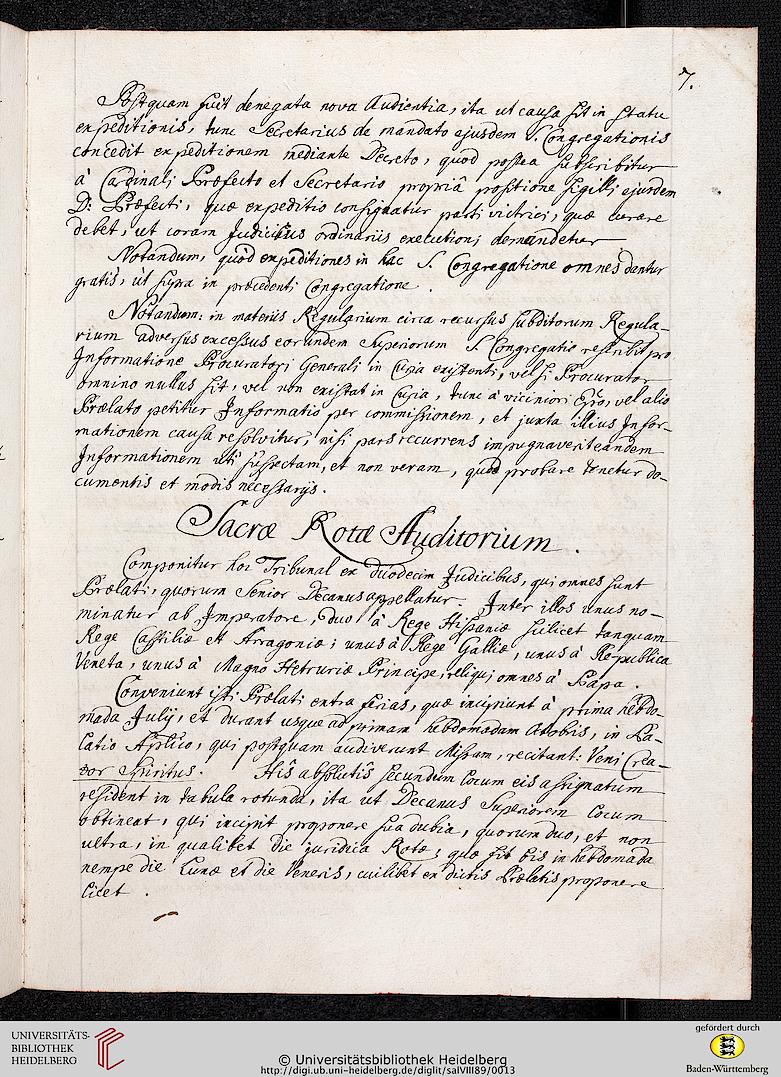 7.
Postquam fuit denegata nova Audientia, ita ut causa sit in statu
expeditionis, tunc Secretarius de mandato ejusdem S. Congregationis
concedit expeditionem mediante Decreto, quod postea subscribitur
à Cardinali Præfecto et Secretario propriâ positione sigilli ejusdem
D: Præfecti, quæ expeditio consignatur parti victrici, quæ curare
debet, ut coram Judicibus ordinariis executioni demandetur
Notandum, quòd expeditiones in hac S. Congregatione omnes dantur
gratis, ut supra in præcedenti Congregatione.
Notandum: in materiis Regularium circa recursus subditorum Regula-
rium adversus excessus eorundem Superiorum S. Congregatio rescribit pro
Informatione Procuratori Generali in Curia existenti, vel si Procurator
omnino nullus sit, vel non existat in Curia, tunc a viciniori Epõ, vel alio
Prælato petitur Informatio per commissionem, et juxta illius Infor-
mationem causa resolvitur, nisi pars recurrens impugnaverit eandem
Informationem uti suspectam, et non veram, quod probare tenetur do-
cumentis et modis necessarijs.
Sacræ Rotæ Auditorium.
Componitur hoc Tribunal ex duodecim Judicibus, qui omnes sunt
Prælati, quorum Senior Decanus appellatur Inter illos unus no-
minatur ab Imperatore, duo à Rege Hispaniæ scilicet tanquam
Rege Castiliæ et Arragoniæ; unus à Rege Galliæ, unus à Republica
Veneta, unus à Magno Hetruriæ Principe, reliqui omnes à Papa.
Conveniunt isti Prælati extra ferias, quæ incipiunt à prima hebdo-
mada Julij, et durant usque ad primam hebdomadam Octobris, in Pa-
latio Aplico, qui postquam audiverunt Missam, recitant: Veni Crea-
tor Spiritus. His absolutis secundum locum eis assignatum
resident in tabula rotunda, ita ut Decanus Superiorem locum
obtineat, qui incipit proponere sua dubia, quorum duo, et non
ultra, in qualibet die juridica Rotæ, quæ fit bis in hebdomada
nempe die Lunæ et die Veneris, cuilibet ex dictis Prælatis proponere
licet.
UNIVERSITÄTS-
BIBLIOTHEK
HEIDELBERG
© Universitätsbibliothek Heidelberg
http://digi.ub.uni-heidelberg.de/diglit/salVIII89/0013
gefördert durch
Baden-Württemberg